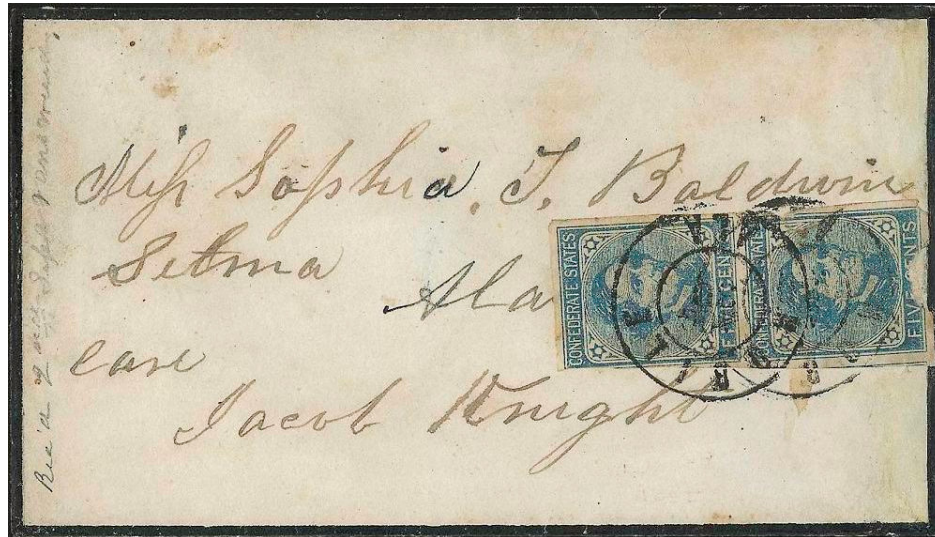 Miss Sophia, T. Baldwin
Selma
Ala
care
Jacob Knight
Rec'd 2nd Sept
CONFEDERATE STATES
FIVE CENTS
CONFEDERATE STATES
FIVE CENTS